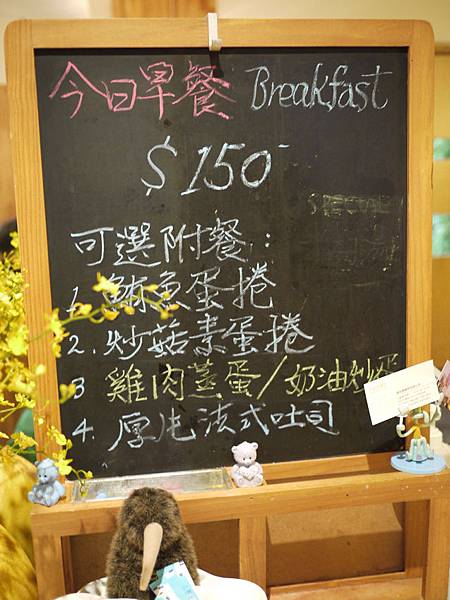 今日早餐 Breakfast
$150-
可選附餐：
1. 鮪魚蛋捲
2. 炒菇素蛋捲
3 雞肉蒸蛋/奶油炒蛋
4. 厚片法式吐司